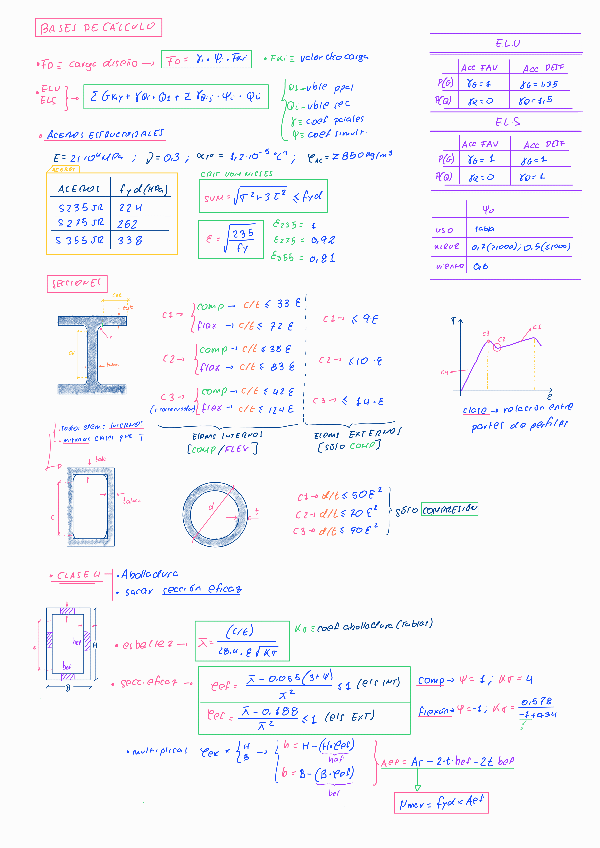 BASES DE CÁLCULO
• FD ≡ carga diseño → FD = γi · Ψi · Fki • Fki ≡ valor cko carga
• ELU
ELS
Σ Gkj + γQ1 · Q1 + Σ γQi,j · Ψi · Qi
Q1 → vble ppal
Qi → vble sec
γ ≡ coef pciales
Ψ ≡ coef simult.
E.L.U
Acc FAV Acc DESF
P(G) γG = 1 γG = 1.35
P(Q) γQ = 0 γQ = 1.5
E L S
Acc FAV Acc DESF
P(G) γG = 1 γG = 1
P(Q) γQ = 0 γQ = 1
Ψ0
USO tabla
NIEVE 0,7 (≥1000); 0,5 (≤1000)
VIENTO 0,6
• ACEROS ESTRUCTURALES
E = 21·10⁴ MPa ; ν = 0.3 ; α = 1,2·10⁻⁵ °C⁻¹ ; ρAC = 7850 kg/m³
ACEROS fyd (MPa)
S235 JR 224
S275 JR 262
S355 JR 338
CRIT VON MISES
SVM = √σ²+3τ² ≤ fyd
ε = √235/fy
ε235 = 1
ε275 = 0,92
ε355 = 0,81
SECCIONES
C1 → comp → c/t ≤ 33 ε
flex → c/t ≤ 72 ε
C1 → ≤ 9 ε
C2 → comp → c/t ≤ 38 ε
flex → c/t ≤ 83 ε
C2 → ≤ 10 · ε
C3 → comp → c/t ≤ 42 ε
flex → c/t ≤ 124 ε
C3 → ≤ 14 · ε
ELEMS INTERNOS
[COMP/FLEX]
ELEMS EXTERNOS
[SOLO COMP]
clase → relación entre
partes de perfiles
C1 → d/t ≤ 50 ε²
C2 → d/t ≤ 70 ε²
C3 → d/t ≤ 90 ε²
SÓLO COMPRESIÓN
• CLASE 4
• Abolladura
• sacar sección eficaz
• esbeltez → λ = (c/t) / 28.4 · ε √Kσ
Kσ ≡ coef abolladura (tablas)
• secc. eficaz → ρef = λ − 0.055 (3+Ψ) / λ² ≤ 1 (elS INT)
ρef = λ − 0.188 / λ² ≤ 1 (elS EXT)
comp → Ψ = 1 ; Kσ = 4
flexión → Ψ = −1 ; Kσ =
• multiplicar ρef × H
B
b = H − (H·ρef)
hef
b = B − (B·ρef)
bef
Aef = Ar − 2·t·hef − 2t bef
fyd × Aef